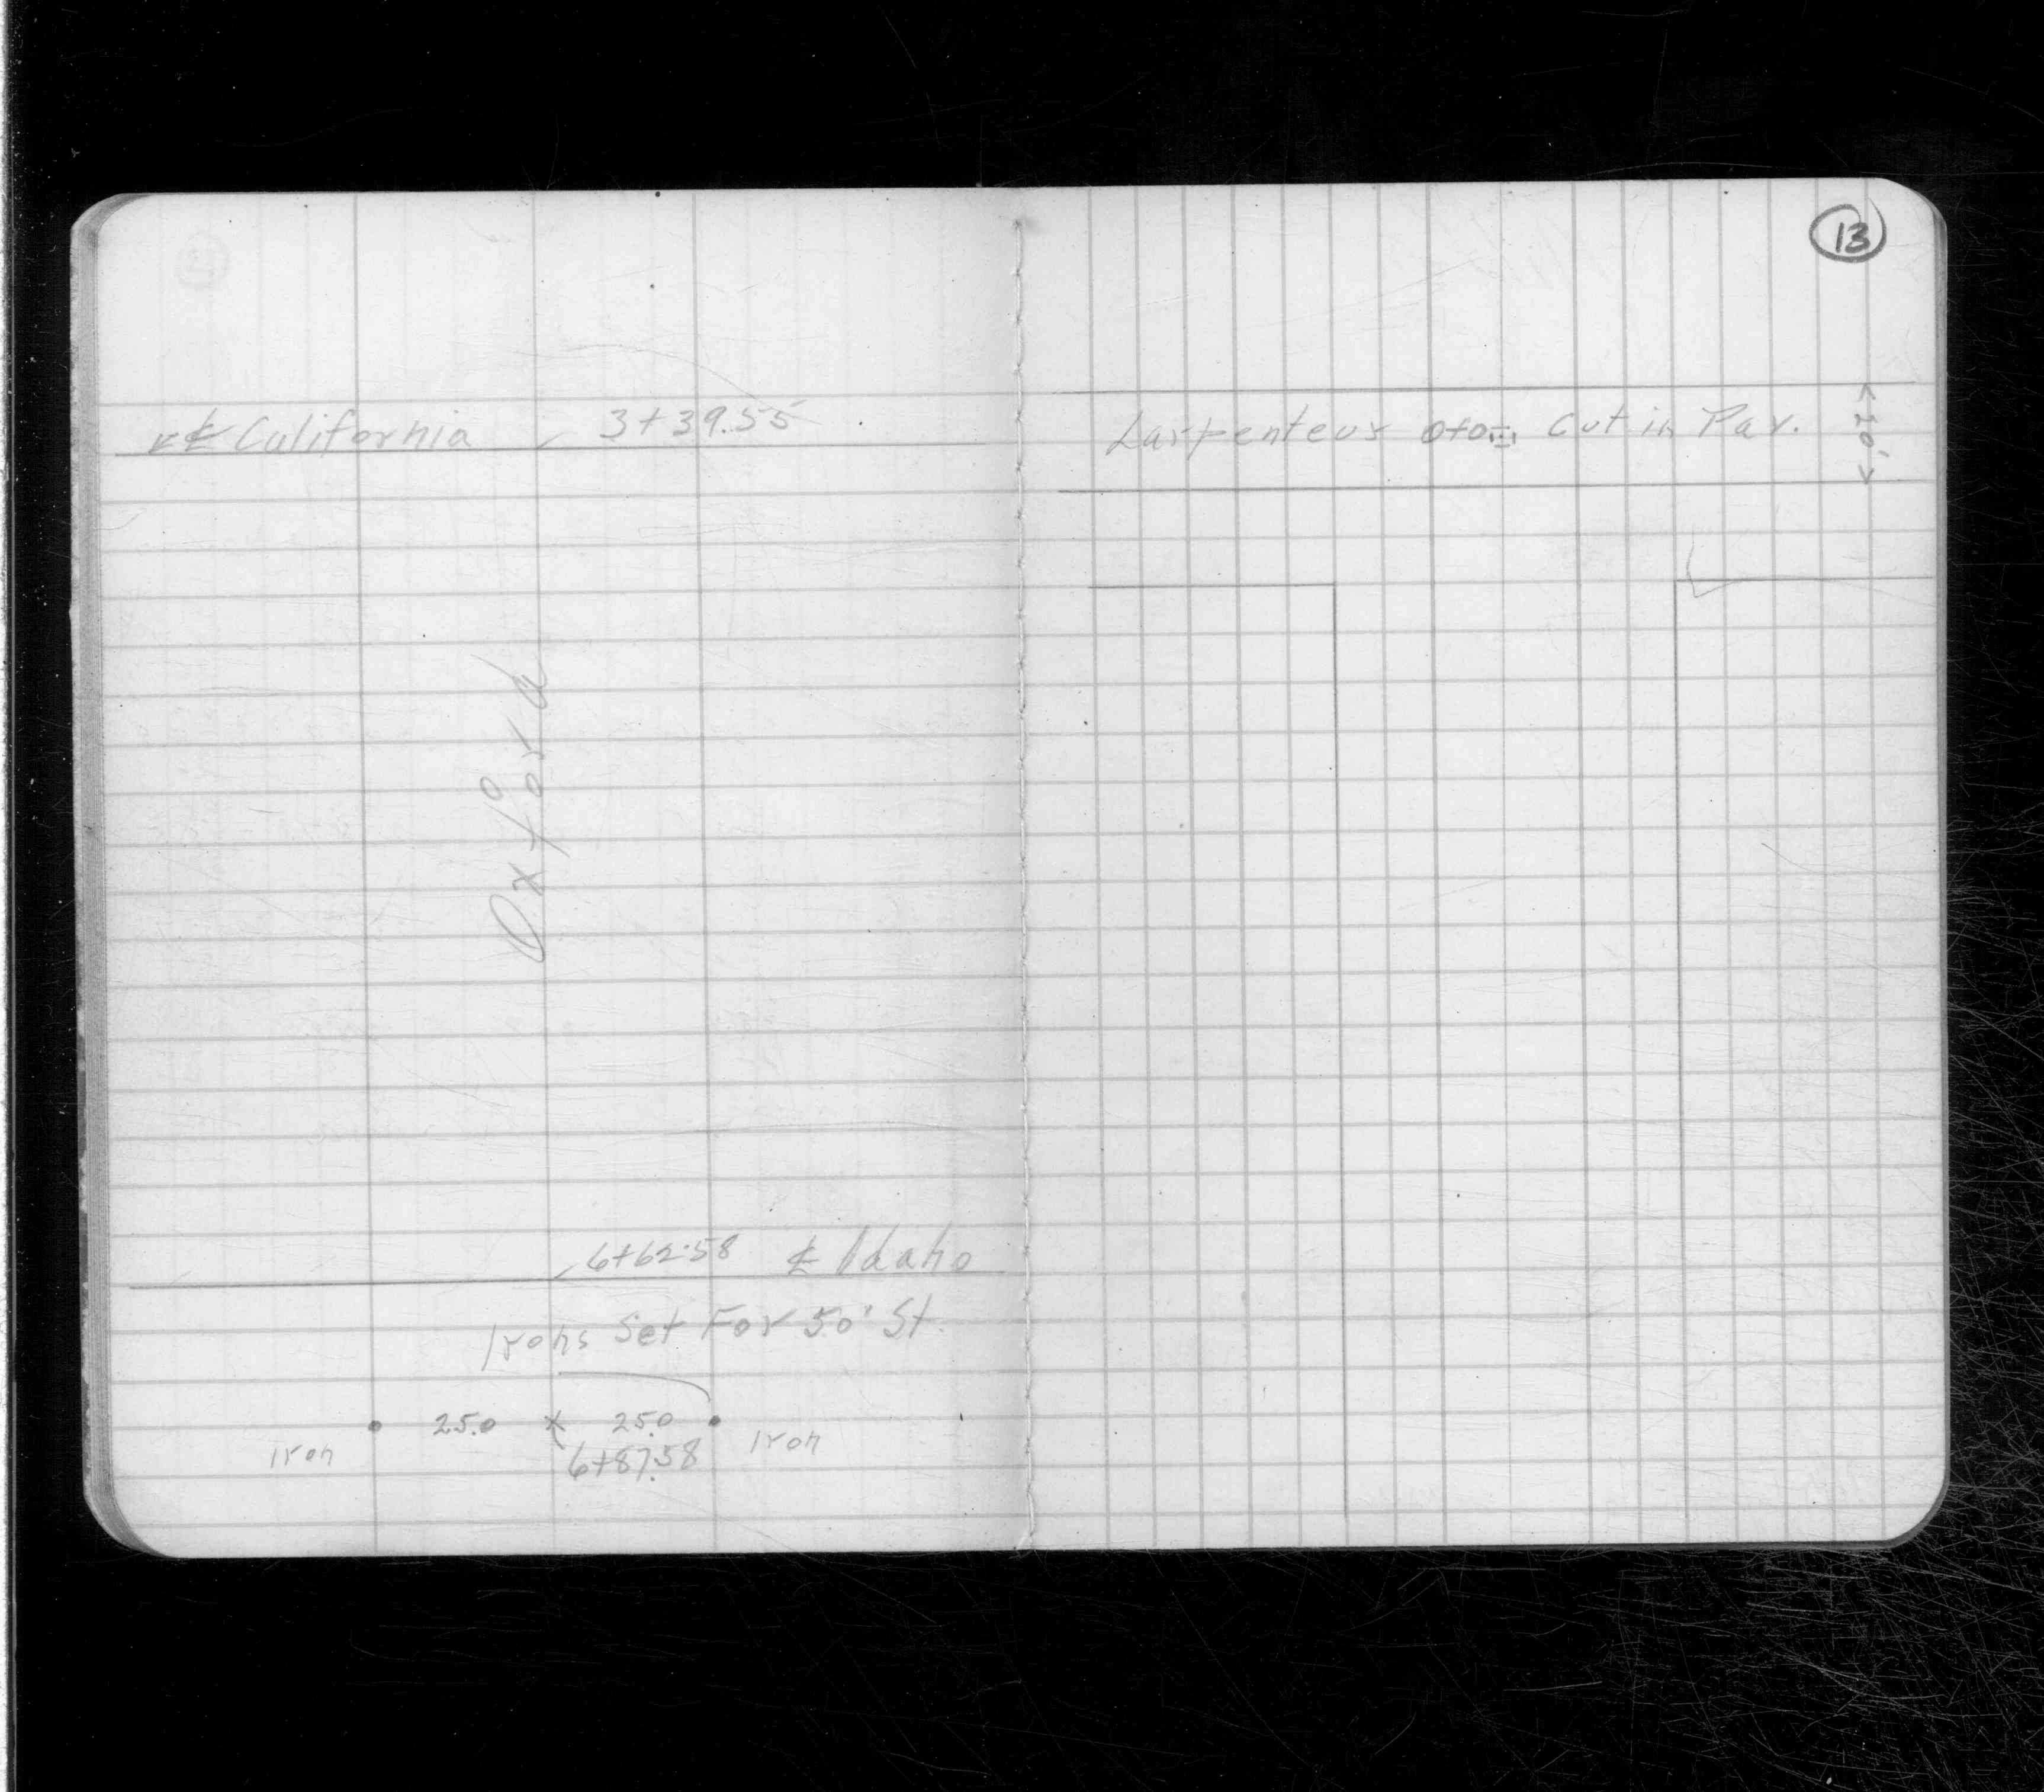 13
℄ California 3+39.55
Oxford
6+62.58 ℄ Idaho
Irons Set For 50' St.
25.0 x 25.0
Iron 6+87.58 Iron
Larpenteur 0+00 Cut in Pav.